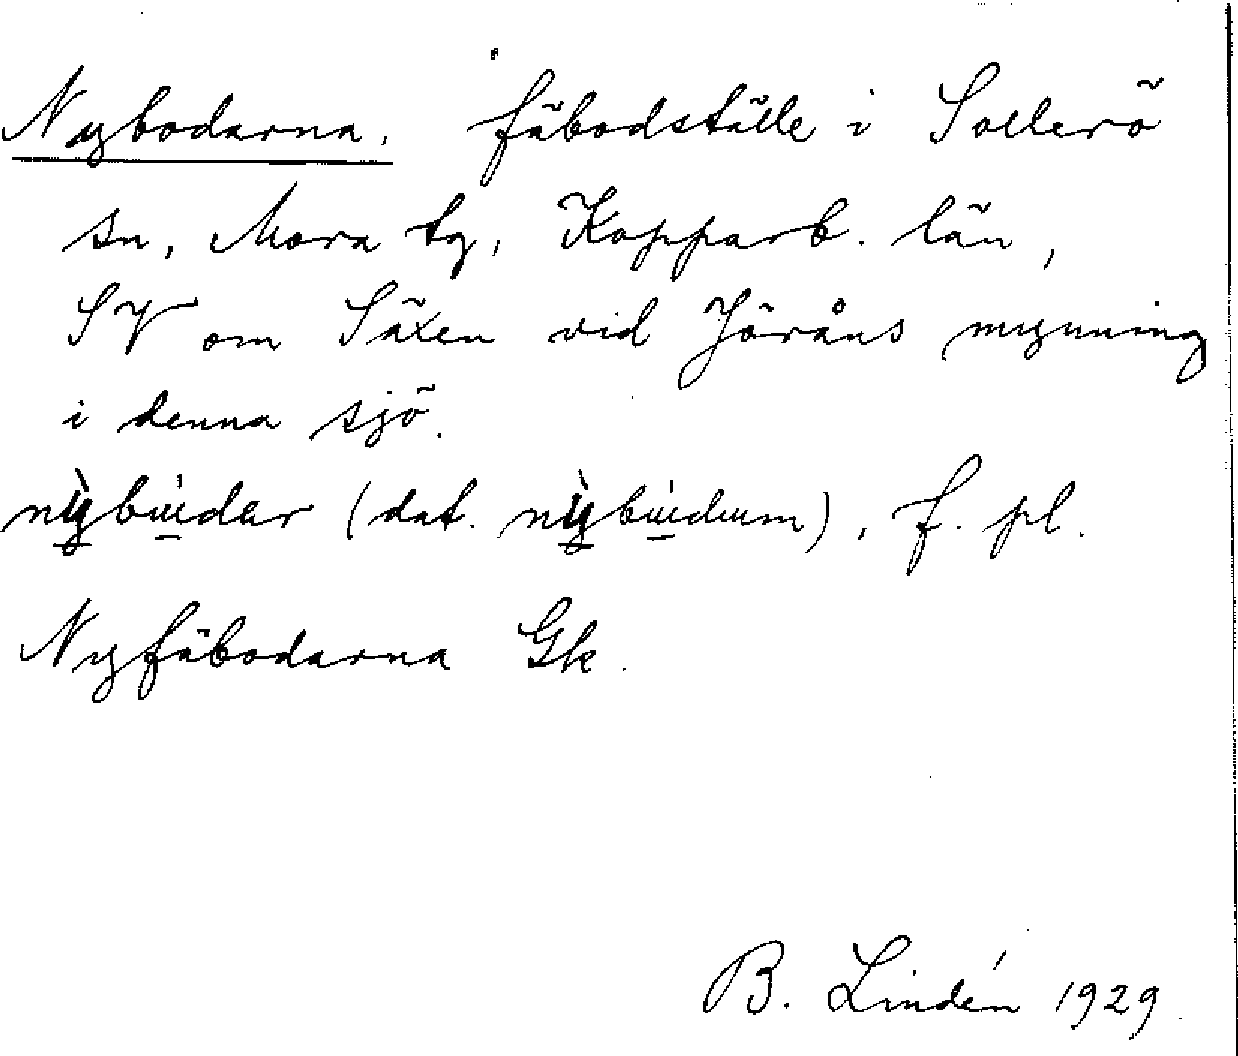 Nybodarna. fäbodställe i Sollerö
sn, Mora tg, Kopparb. län,
SV om Säxen vid Jöråns mynning
i denna sjö.
nỳ̠bu̠̇dar (dat. nỳ̠bu̠̇dum), f. pl.
Nyfäbodarna Gk.
B. Lindén 1929